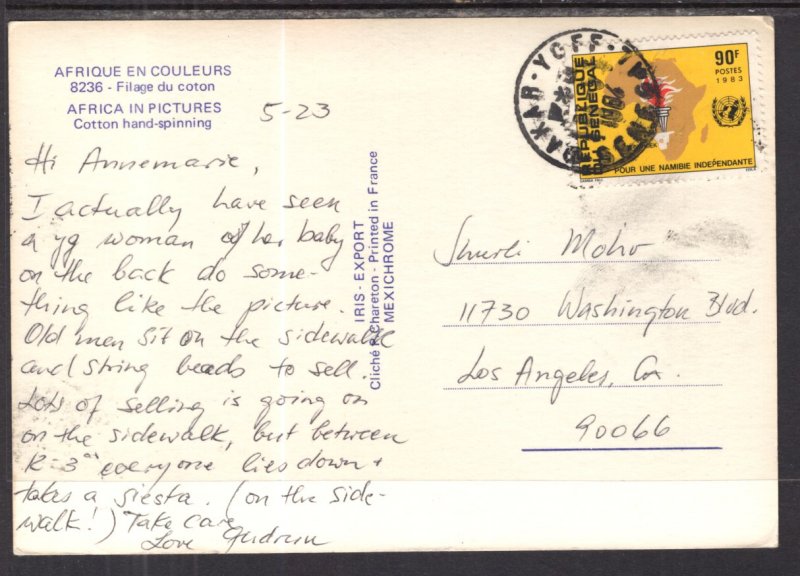 AFRIQUE EN COULEURS
8236 - Filage du coton
AFRICA IN PICTURES
Cotton hand-spinning
5-23
Hi Annemarie,
I actually have seen
a yg woman w/ her baby
on the back do some-
thing like the picture.
Old men sit on the sidewalk
and string beads to sell.
Lots of selling is going on
on the sidewalk, but between
12-3 everyone lies down +
takes a siesta. (on the side-
walk!) Take care
Love Gudrun
IRIS - EXPORT
Cliché R. Chareton - Printed in France
MEXICHROME
DAKAR-YOFF
SENEGAL
1984
REPUBLIQUE
DU SENEGAL
90F
POSTES
1983
POUR UNE NAMIBIE INDEPENDANTE
Mohr
11730 Washington Blvd.
Los Angeles, Ca.
90066